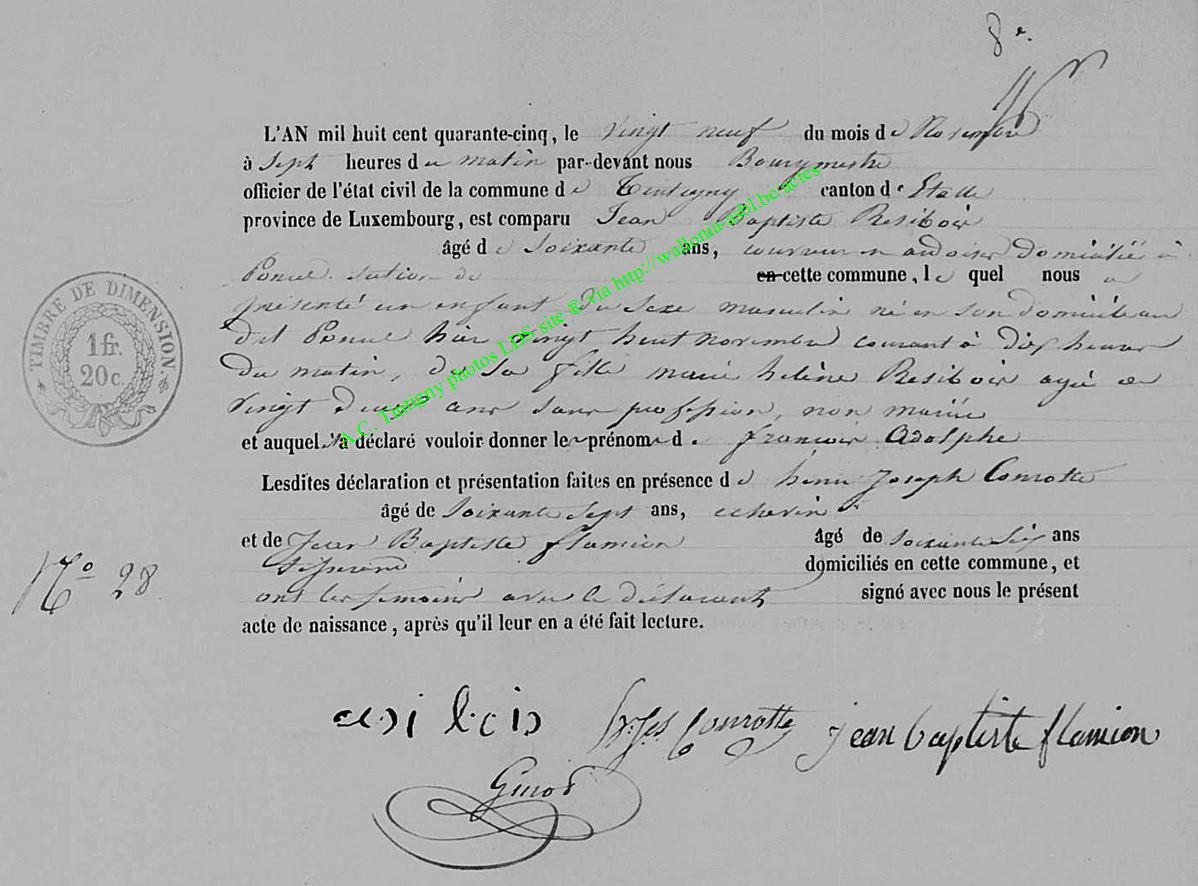 8e.
L'AN mil huit cent quarante-cinq, le vingt neuf du mois de Novembre
à sept heures du matin par-devant nous Bourgmestre
officier de l'état civil de la commune de Tintigny canton d'Etalle
province de Luxembourg, est comparu Jean Baptiste Resibois
âgé de soixante ans, couvreur en ardoises domicilié à
Poncel section de en cette commune, lequel nous a
présenté un enfant du sexe masculin né en son domicile au
dit Poncel hier vingt huit novembre courant à dix heures
du matin, de sa fille marie helène Resibois agée de
vingt deux ans sans profession, non mariée
et auquel il a déclaré vouloir donner les prénoms de françois Adolphe
Lesdites déclaration et présentation faites en présence de henri Joseph Conrotte
âgé de soixante sept ans, echevin
et de Jean Baptiste flamion âgé de soixante six ans
domiciliés en cette commune, et
ont les temoins avec le déclarant signé avec nous le présent
acte de naissance, après qu'il leur en a été fait lecture.
TIMBRE DE DIMENSION
1 fr.
20 c.
No 28
A.C. Tintigny photos LDS site ® via http://wallonia-asbl.be/actes
Conrotte jean baptiste flamion